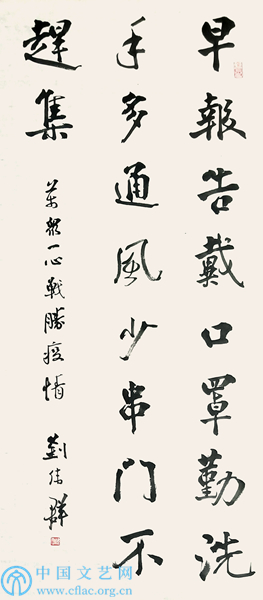 早報告戴口罩勤洗
手多通風少串门不
趕集
萬眾一心戰勝疫情 劉偉群
中国文艺网
www.cflac.org.cn